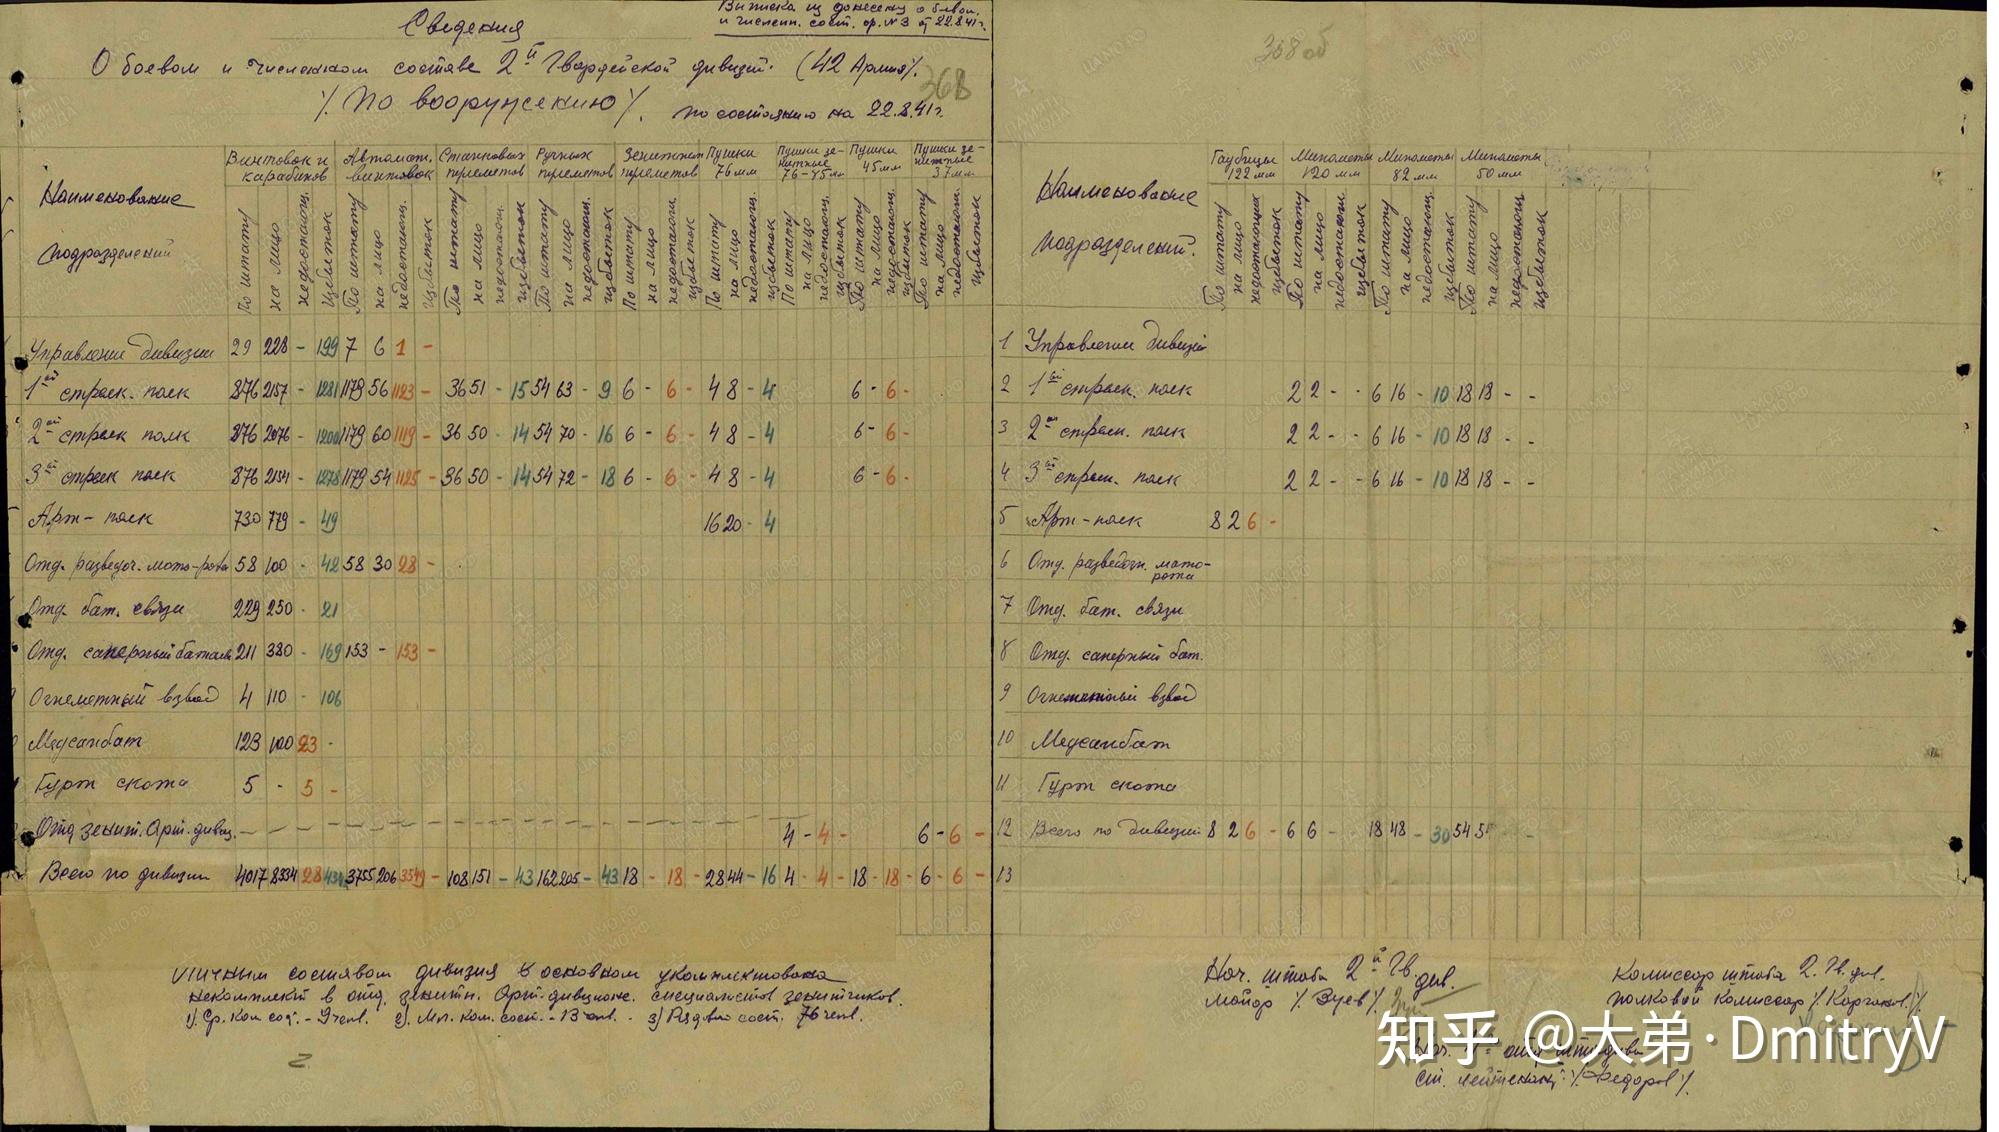 Сведения
Выписка из донесения о боев.
и числен. сост. ор. №3 от 22.8.41г.
О боевом и численном составе 2й Гвардейской дивизии (42 Армия).
368
/По вооружению/. по состоянию на 22.8.41г.
Наименование подразделений
Винтовок и карабинов
Автомат. винтовок
Станковых пулеметов
Ручных пулеметов
Зенитных пулеметов
Пушки 76 мм
Пушки зенитные 76-85 мм
Пушки 45 мм
Пушки зенитные 37 мм
По штату на лицо недостающ. избыток По штату на лицо недостающ. избыток По штату на лицо недостающ. избыток По штату на лицо недостающ. избыток По штату на лицо недостающ. избыток По штату на лицо недостающ. избыток По штату на лицо недостающ. избыток По штату на лицо недостающ. избыток По штату на лицо недостающ. избыток
Управление дивизии 29 228 - 199 7 6 1 -
1ый стрелк. полк 876 2157 - 1281 1179 56 1123 - 36 51 - 15 54 63 - 9 6 - 6 - 4 8 - 4 6 - 6 -
2ой стрелк полк 876 2076 - 1200 1179 60 1119 - 36 50 - 14 54 70 - 16 6 - 6 - 4 8 - 4 6 - 6 -
3ий стрелк полк 876 2154 - 1278 1179 54 1125 - 36 50 - 14 54 72 - 18 6 - 6 - 4 8 - 4 6 - 6 -
Арт-полк 730 779 - 49 16 20 - 4
Отд. разведоч. мото-рота 58 100 - 42 58 30 28 -
Отд. бат. связи 229 250 - 21
Отд. саперный батальон 211 380 - 169 153 - 153 -
Огнеметный взвод 4 110 - 106
Медсанбат 123 100 23 -
Гурт скота 5 - 5 -
Отд зенит. Арт. дивиз. 4 - 4 - 6 - 6 -
Всего по дивизии 4017 8334 28 3755 206 3549 - 108 151 - 43 162 205 - 43 18 - 18 - 28 44 - 16 4 - 4 - 18 - 18 - 6 - 6 -
Личным составом дивизия в основном укомплектована
некомплект в отд. зенитн. Арт. дивизионе. специалистов зенитчиков.
1). Ср. Ком сос. - 9 чел. 2). Мл. Ком. сост. - 13 чел. - 3) Рядово сост. 76 чел.
2
368 об
Наименование подразделений.
Гаубицы 122 мм
Минометы 120 мм
Минометы 82 мм
Минометы 50 мм
По штату на лицо недостающих избыток По штату на лицо недостающ. избыток По штату на лицо недостающ избыток По штату на лицо недостающ избыток
1 Управление дивизии
2 1ый стрелк. полк 2 2 - - 6 16 - 10 18 18 - -
3 2ой стрелк. полк 2 2 - - 6 16 - 10 18 18 - -
4 3ий стрелк. полк 2 2 - - 6 16 - 10 18 18 - -
5 Арт-полк 8 2 6 -
6 Отд. разведоч. мото-рота
7 Отд. бат. связи
8 Отд. саперный бат.
9 Огнеметный взвод
10 Медсанбат
11 Гурт скота
12 Всего по дивизии 8 2 6 - 6 6 - 18 48 - 30 54 - -
13
Нач. штаба 2й Гв. див.
майор /. Зуев /.
Комиссар штаба 2. Гв. див.
полковой комиссар /.
ст. лейтенант /. Федоров /.
知乎 @大弟·DmitryV